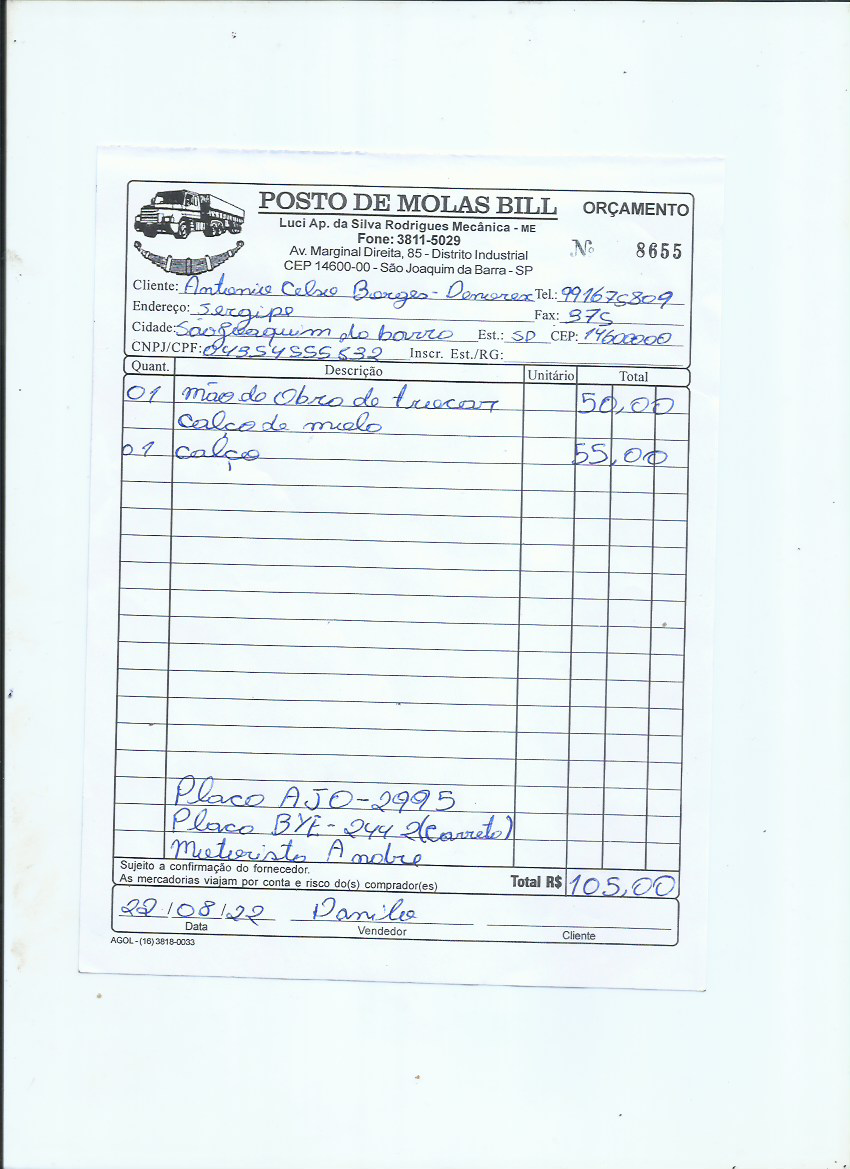 POSTO DE MOLAS BILL
ORÇAMENTO
Luci Ap. da Silva Rodrigues Mecânica - ME
Fone: 3811-5029
Av. Marginal Direita, 85 - Distrito Industrial
CEP 14600-00 - São Joaquim da Barra - SP
Nº 8655
Cliente: Antonio Celso Borges - Tel.: 991675809
Endereço: Sergipe Fax: 375
Cidade: São Joaquim da barra Est.: SP CEP: 14600000
CNPJ/CPF: 04354555632 Inscr. Est./RG:
Quant. Descrição Unitário Total
01 mão de Obra de trocar 50,00
calço de
01 calço 55,00
Placa AJO-2995
Placa BYF-2442 (Carreta)
Motorista Andre
Sujeito a confirmação do fornecedor.
As mercadorias viajam por conta e risco do(s) comprador(es)
Total R$ 105,00
22/08/22 Danilo
Data Vendedor Cliente
AGOL - (16) 3818-0033